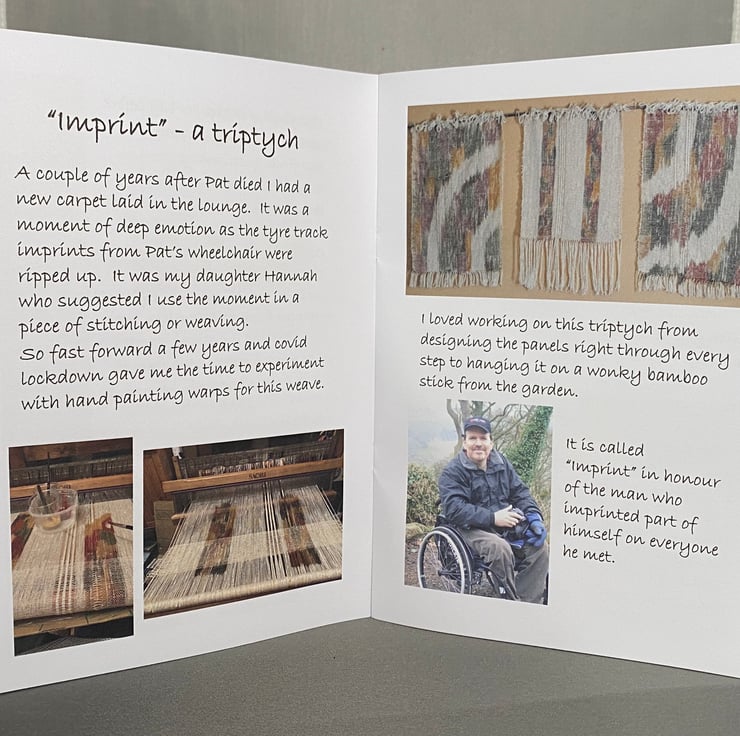 “Imprint” - a triptych
A couple of years after Pat died I had a
new carpet laid in the lounge. It was a
moment of deep emotion as the tyre track
imprints from Pat’s wheelchair were
ripped up. It was my daughter Hannah
who suggested I use the moment in a
piece of stitching or weaving.
So fast forward a few years and covid
lockdown gave me the time to experiment
with hand painting warps for this weave.
I loved working on this triptych from
designing the panels right through every
step to hanging it on a wonky bamboo
stick from the garden.
It is called
“Imprint” in honour
of the man who
imprinted part of
himself on everyone
he met.